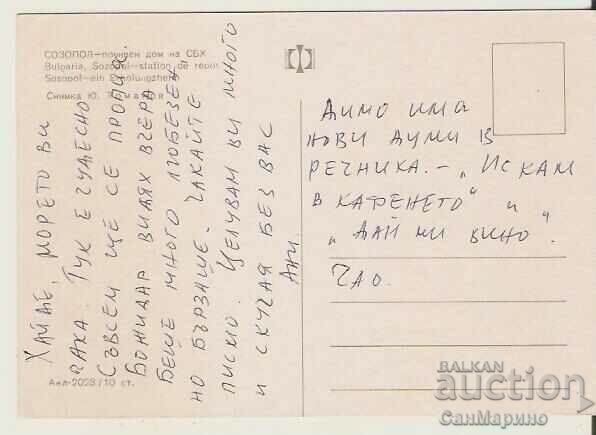 СОЗОПОЛ—почивен дом на СБХ
Bulgaria, Sozopol—station de repos
Sosopol—ein Erholungsheim
Снимка Ю.
ХАЙДЕ, МОРЕТО ВИ
ЧАКА ТУК Е ЧУДЕСНО
СЪВСЕМ ЩЕ СЕ ПРОПИЯ.
БОЖИДАР ВИДЯХ ВЧЕРА
БЕШЕ МНОГО ЛЮБЕЗЕН,
НО БЪРЗАШЕ. ЧАКАЙТЕ
ПИСМО. ЦЕЛУВАМ ВИ МНОГО
И СКУЧАЯ БЕЗ ВАС
АНИ.
ДИМО ИМА
НОВИ ДУМИ В
РЕЧНИКА. – „ИСКАМ
В КАФЕНЕТО“ И
„ДАЙ МИ ВИНО“.
ЧАО.
Акл-2028/10 ст.
BALKAN
auction
СанМарино